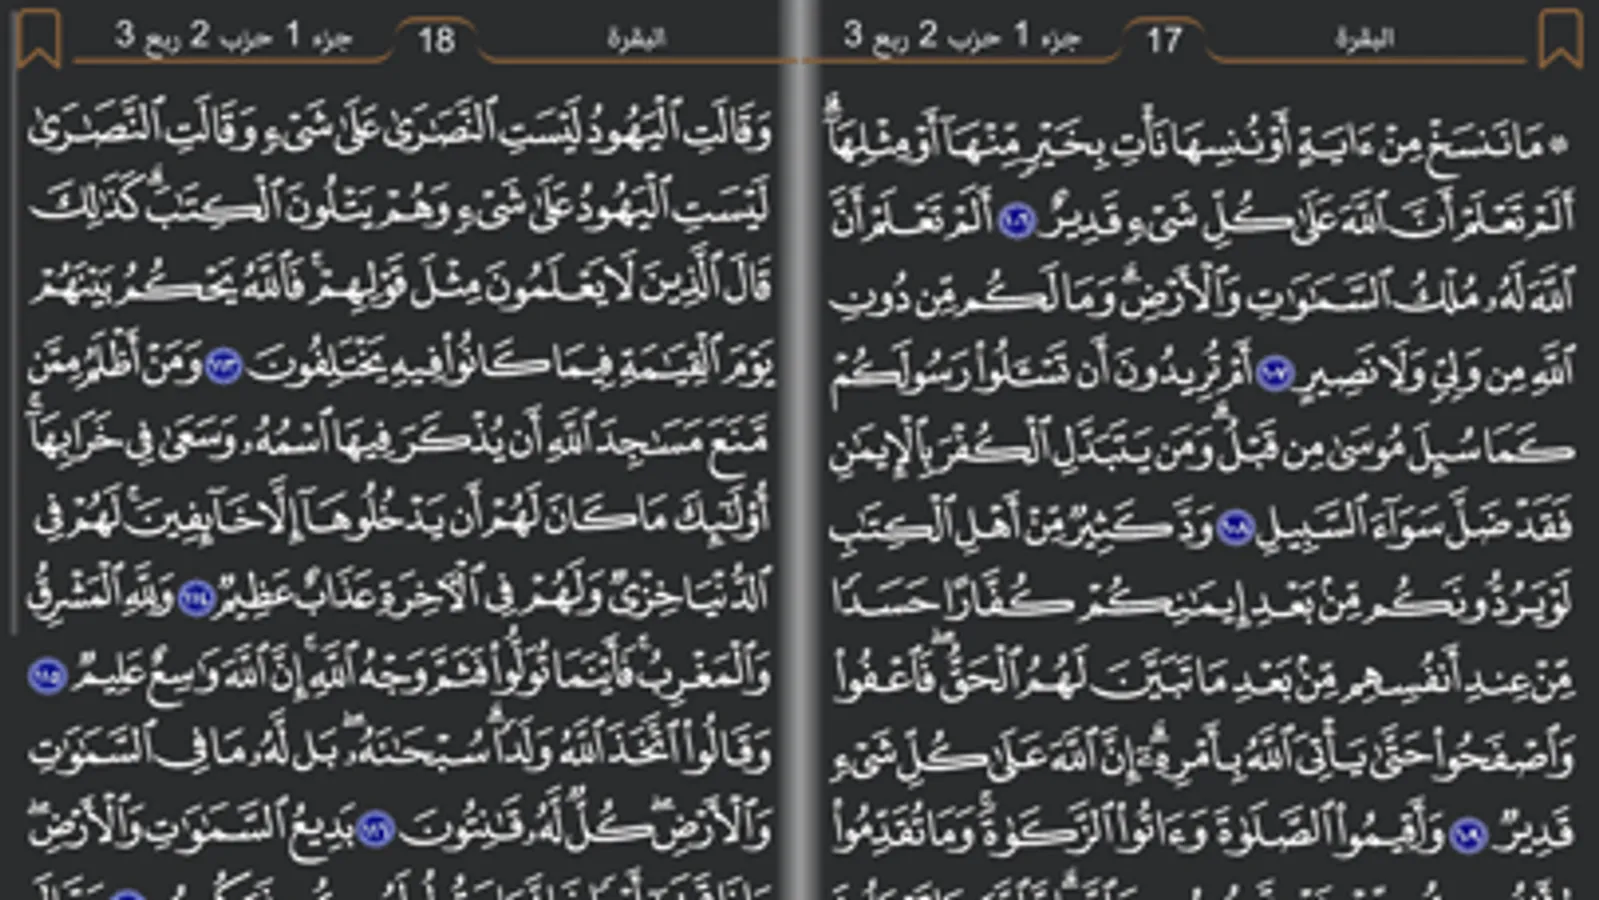 البقرة 17 جزء 1 حزب 2 ربع 3
۞ مَا نَنسَخْ مِنْ ءَايَةٍ أَوْ نُنسِهَا نَأْتِ بِخَيْرٍ مِّنْهَآ أَوْ مِثْلِهَآۗ
أَلَمْ تَعْلَمْ أَنَّ ٱللَّهَ عَلَىٰ كُلِّ شَىْءٍ قَدِيرٌ ١٠٦ أَلَمْ تَعْلَمْ أَنَّ
ٱللَّهَ لَهُۥ مُلْكُ ٱلسَّمَٰوَٰتِ وَٱلْأَرْضِۗ وَمَا لَكُم مِّن دُونِ
ٱللَّهِ مِن وَلِىٍّ وَلَا نَصِيرٍ ١٠٧ أَمْ تُرِيدُونَ أَن تَسْـَٔلُوا۟ رَسُولَكُمْ
كَمَا سُئِلَ مُوسَىٰ مِن قَبْلُۗ وَمَن يَتَبَدَّلِ ٱلْكُفْرَ بِٱلْإِيمَٰنِ
فَقَدْ ضَلَّ سَوَآءَ ٱلسَّبِيلِ ١٠٨ وَدَّ كَثِيرٌ مِّنْ أَهْلِ ٱلْكِتَٰبِ
لَوْ يَرُدُّونَكُم مِّنۢ بَعْدِ إِيمَٰنِكُمْ كُفَّارًا حَسَدًا
مِّنْ عِندِ أَنفُسِهِم مِّنۢ بَعْدِ مَا تَبَيَّنَ لَهُمُ ٱلْحَقُّۖ فَٱعْفُوا۟
وَٱصْفَحُوا۟ حَتَّىٰ يَأْتِىَ ٱللَّهُ بِأَمْرِهِۦٓۗ إِنَّ ٱللَّهَ عَلَىٰ كُلِّ شَىْءٍ
قَدِيرٌ ١٠٩ وَأَقِيمُوا۟ ٱلصَّلَوٰةَ وَءَاتُوا۟ ٱلزَّكَوٰةَۚ وَمَا تُقَدِّمُوا۟
البقرة 18 جزء 1 حزب 2 ربع 3
وَقَالَتِ ٱلْيَهُودُ لَيْسَتِ ٱلنَّصَٰرَىٰ عَلَىٰ شَىْءٍ وَقَالَتِ ٱلنَّصَٰرَىٰ
لَيْسَتِ ٱلْيَهُودُ عَلَىٰ شَىْءٍ وَهُمْ يَتْلُونَ ٱلْكِتَٰبَۗ كَذَٰلِكَ
قَالَ ٱلَّذِينَ لَا يَعْلَمُونَ مِثْلَ قَوْلِهِمْۚ فَٱللَّهُ يَحْكُمُ بَيْنَهُمْ
يَوْمَ ٱلْقِيَٰمَةِ فِيمَا كَانُوا۟ فِيهِ يَخْتَلِفُونَ ١١٣ وَمَنْ أَظْلَمُ مِمَّن
مَّنَعَ مَسَٰجِدَ ٱللَّهِ أَن يُذْكَرَ فِيهَا ٱسْمُهُۥ وَسَعَىٰ فِى خَرَابِهَآۚ
أُو۟لَٰٓئِكَ مَا كَانَ لَهُمْ أَن يَدْخُلُوهَآ إِلَّا خَآئِفِينَۚ لَهُمْ فِى
ٱلدُّنْيَا خِزْىٌ وَلَهُمْ فِى ٱلْءَاخِرَةِ عَذَابٌ عَظِيمٌ ١١٤ وَلِلَّهِ ٱلْمَشْرِقُ
وَٱلْمَغْرِبُۚ فَأَيْنَمَا تُوَلُّوا۟ فَثَمَّ وَجْهُ ٱللَّهِۚ إِنَّ ٱللَّهَ وَٰسِعٌ عَلِيمٌ ١١٥
وَقَالُوا۟ ٱتَّخَذَ ٱللَّهُ وَلَدًاۗ سُبْحَٰنَهُۥۖ بَل لَّهُۥ مَا فِى ٱلسَّمَٰوَٰتِ
وَٱلْأَرْضِۖ كُلٌّ لَّهُۥ قَٰنِتُونَ ١١٦ بَدِيعُ ٱلسَّمَٰوَٰتِ وَٱلْأَرْضِۖ